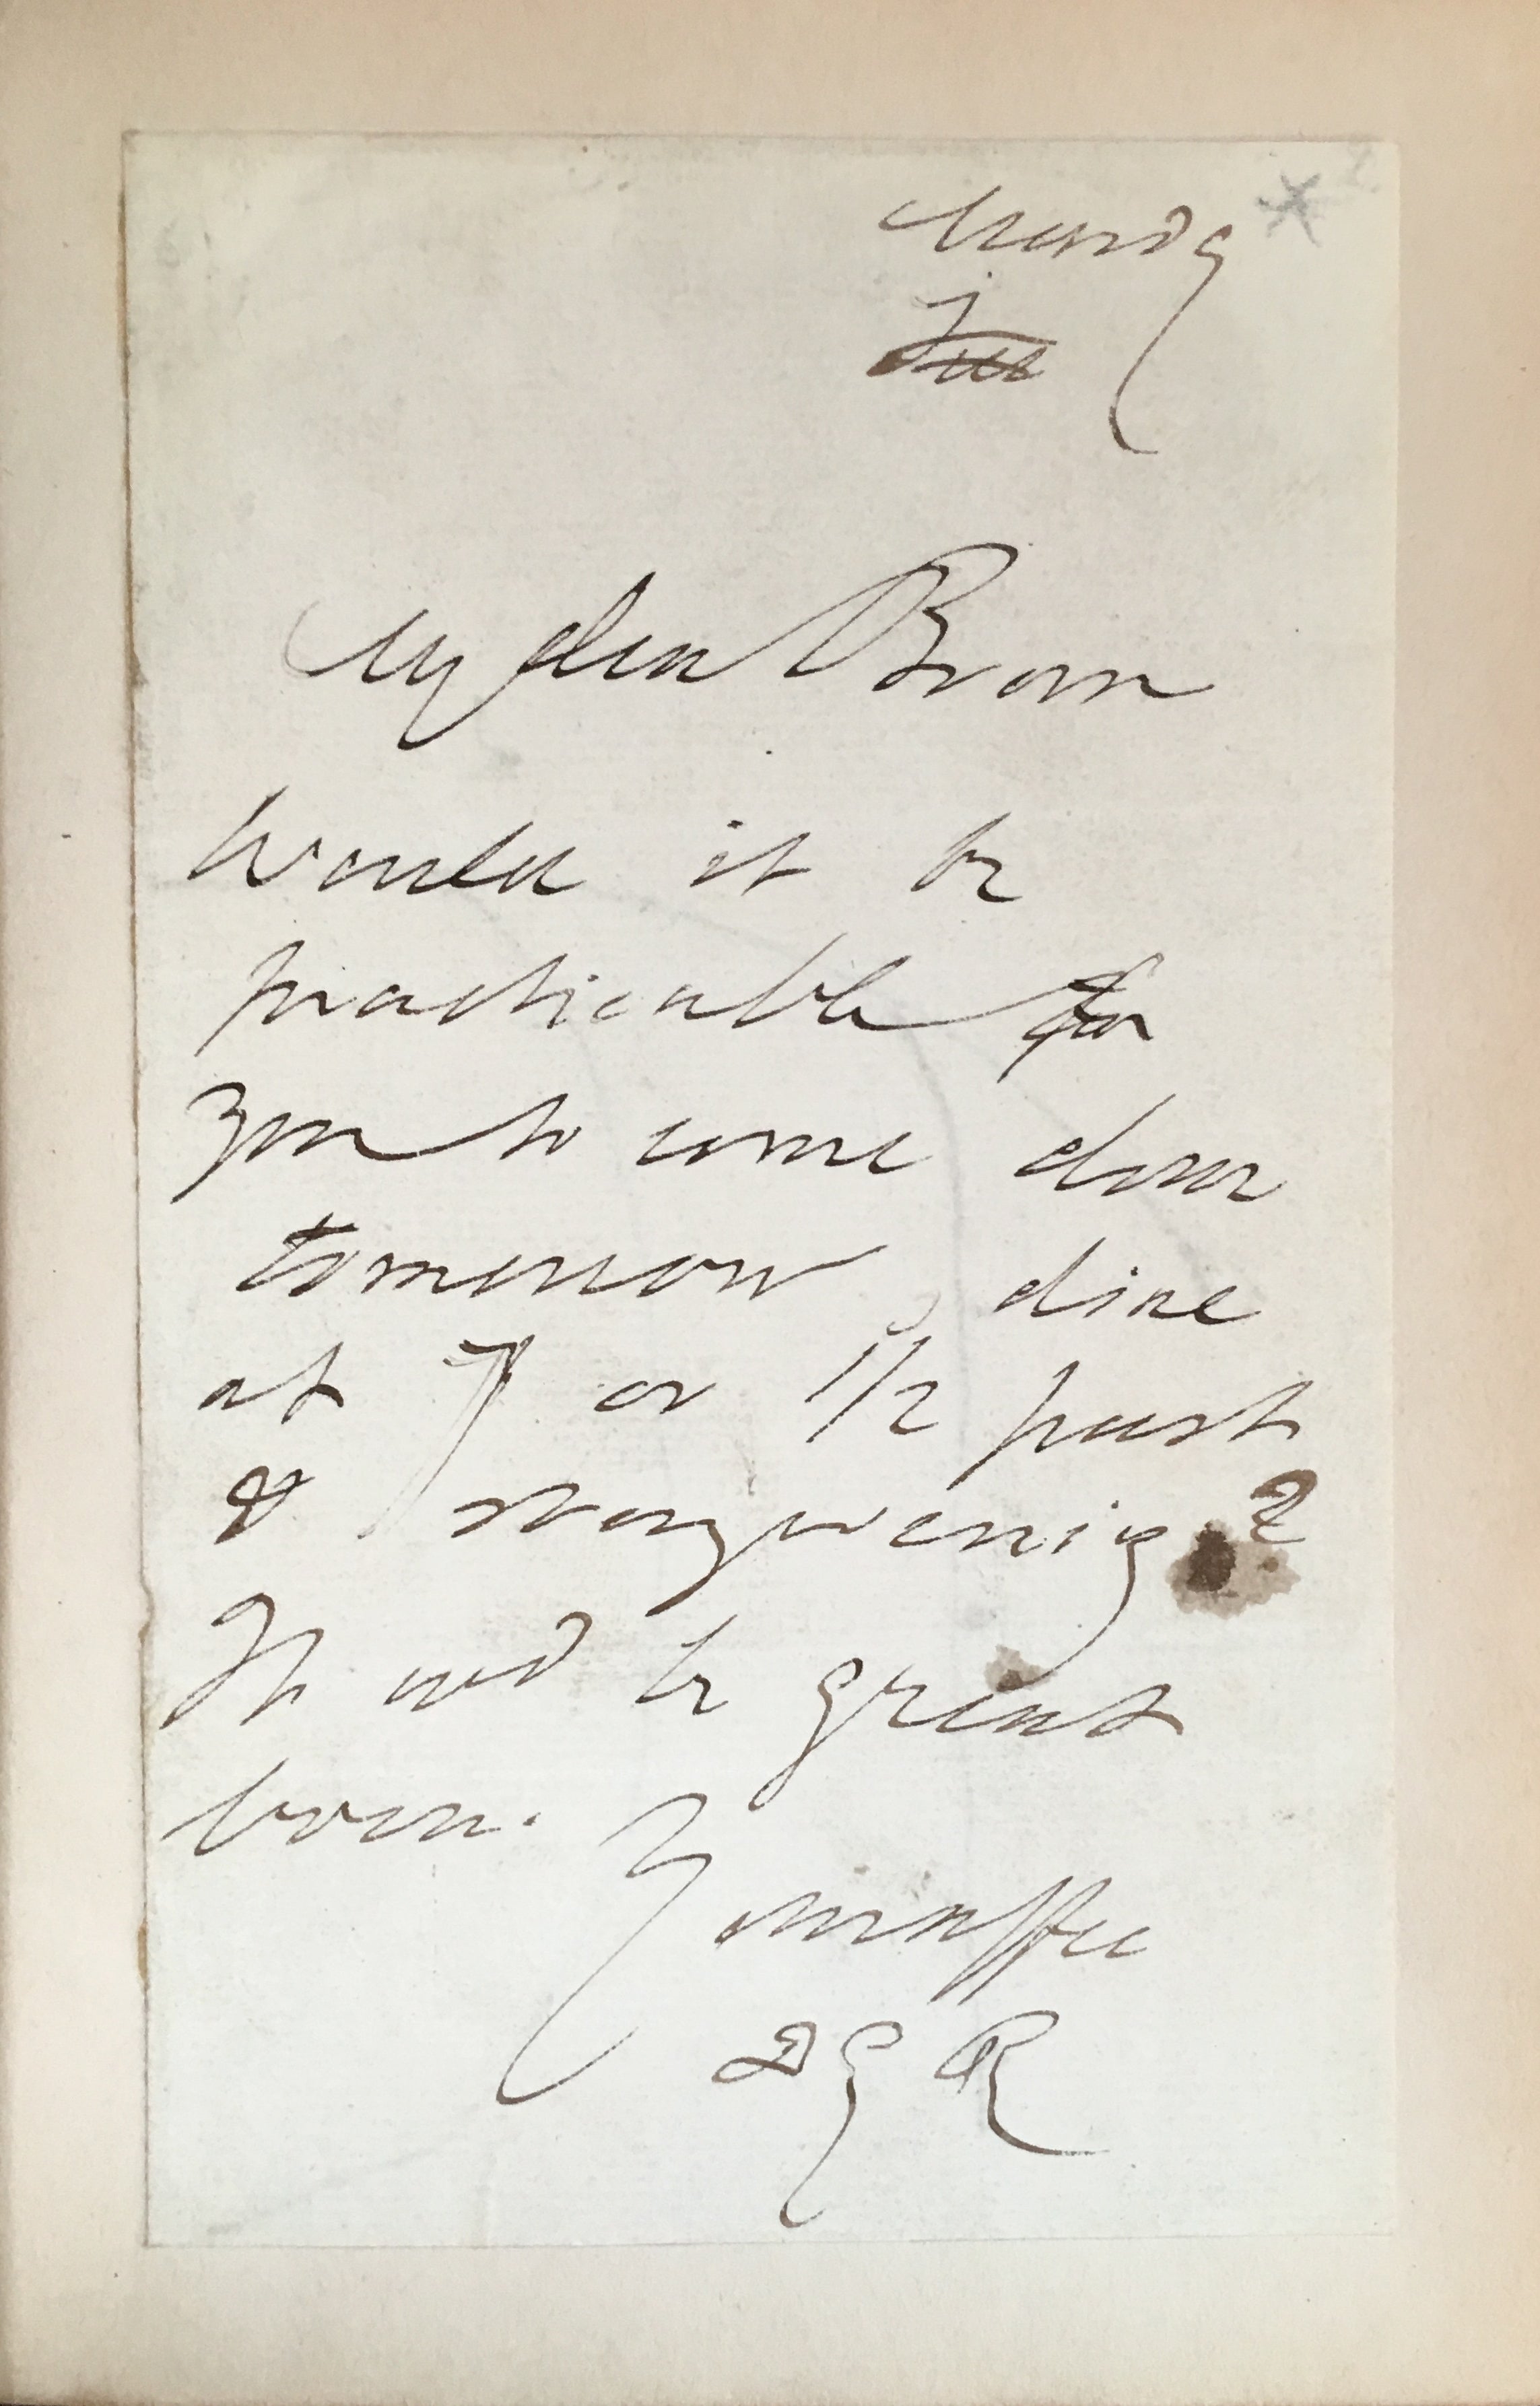 Monday
Tue
My dear Brown
Would it be
practicable for
you to come down
tomorrow, dine
at 7 or 1/2 past
& stay evening?
It wd be great
boon.
Your affec
DGR